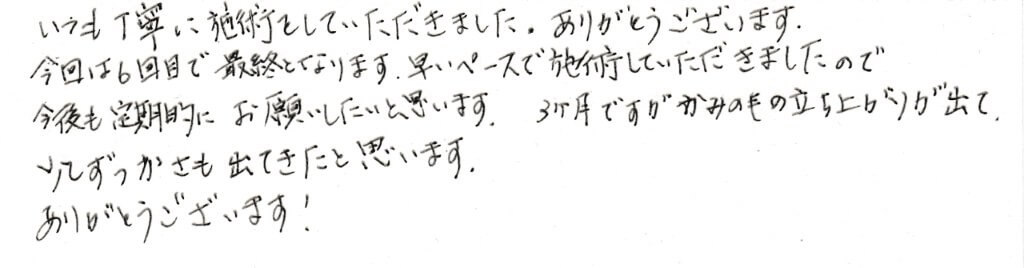 いつも丁寧に施術をしていただきました。ありがとうございます.
今回は6回目で最終となります.早いペースで施術していただきましたので
今後も定期的にお願いしたいと思います. 3ヶ月ですがかみのもの立ち上がりが出て.
少しずつかさも出てきたと思います.
ありがとうございます!